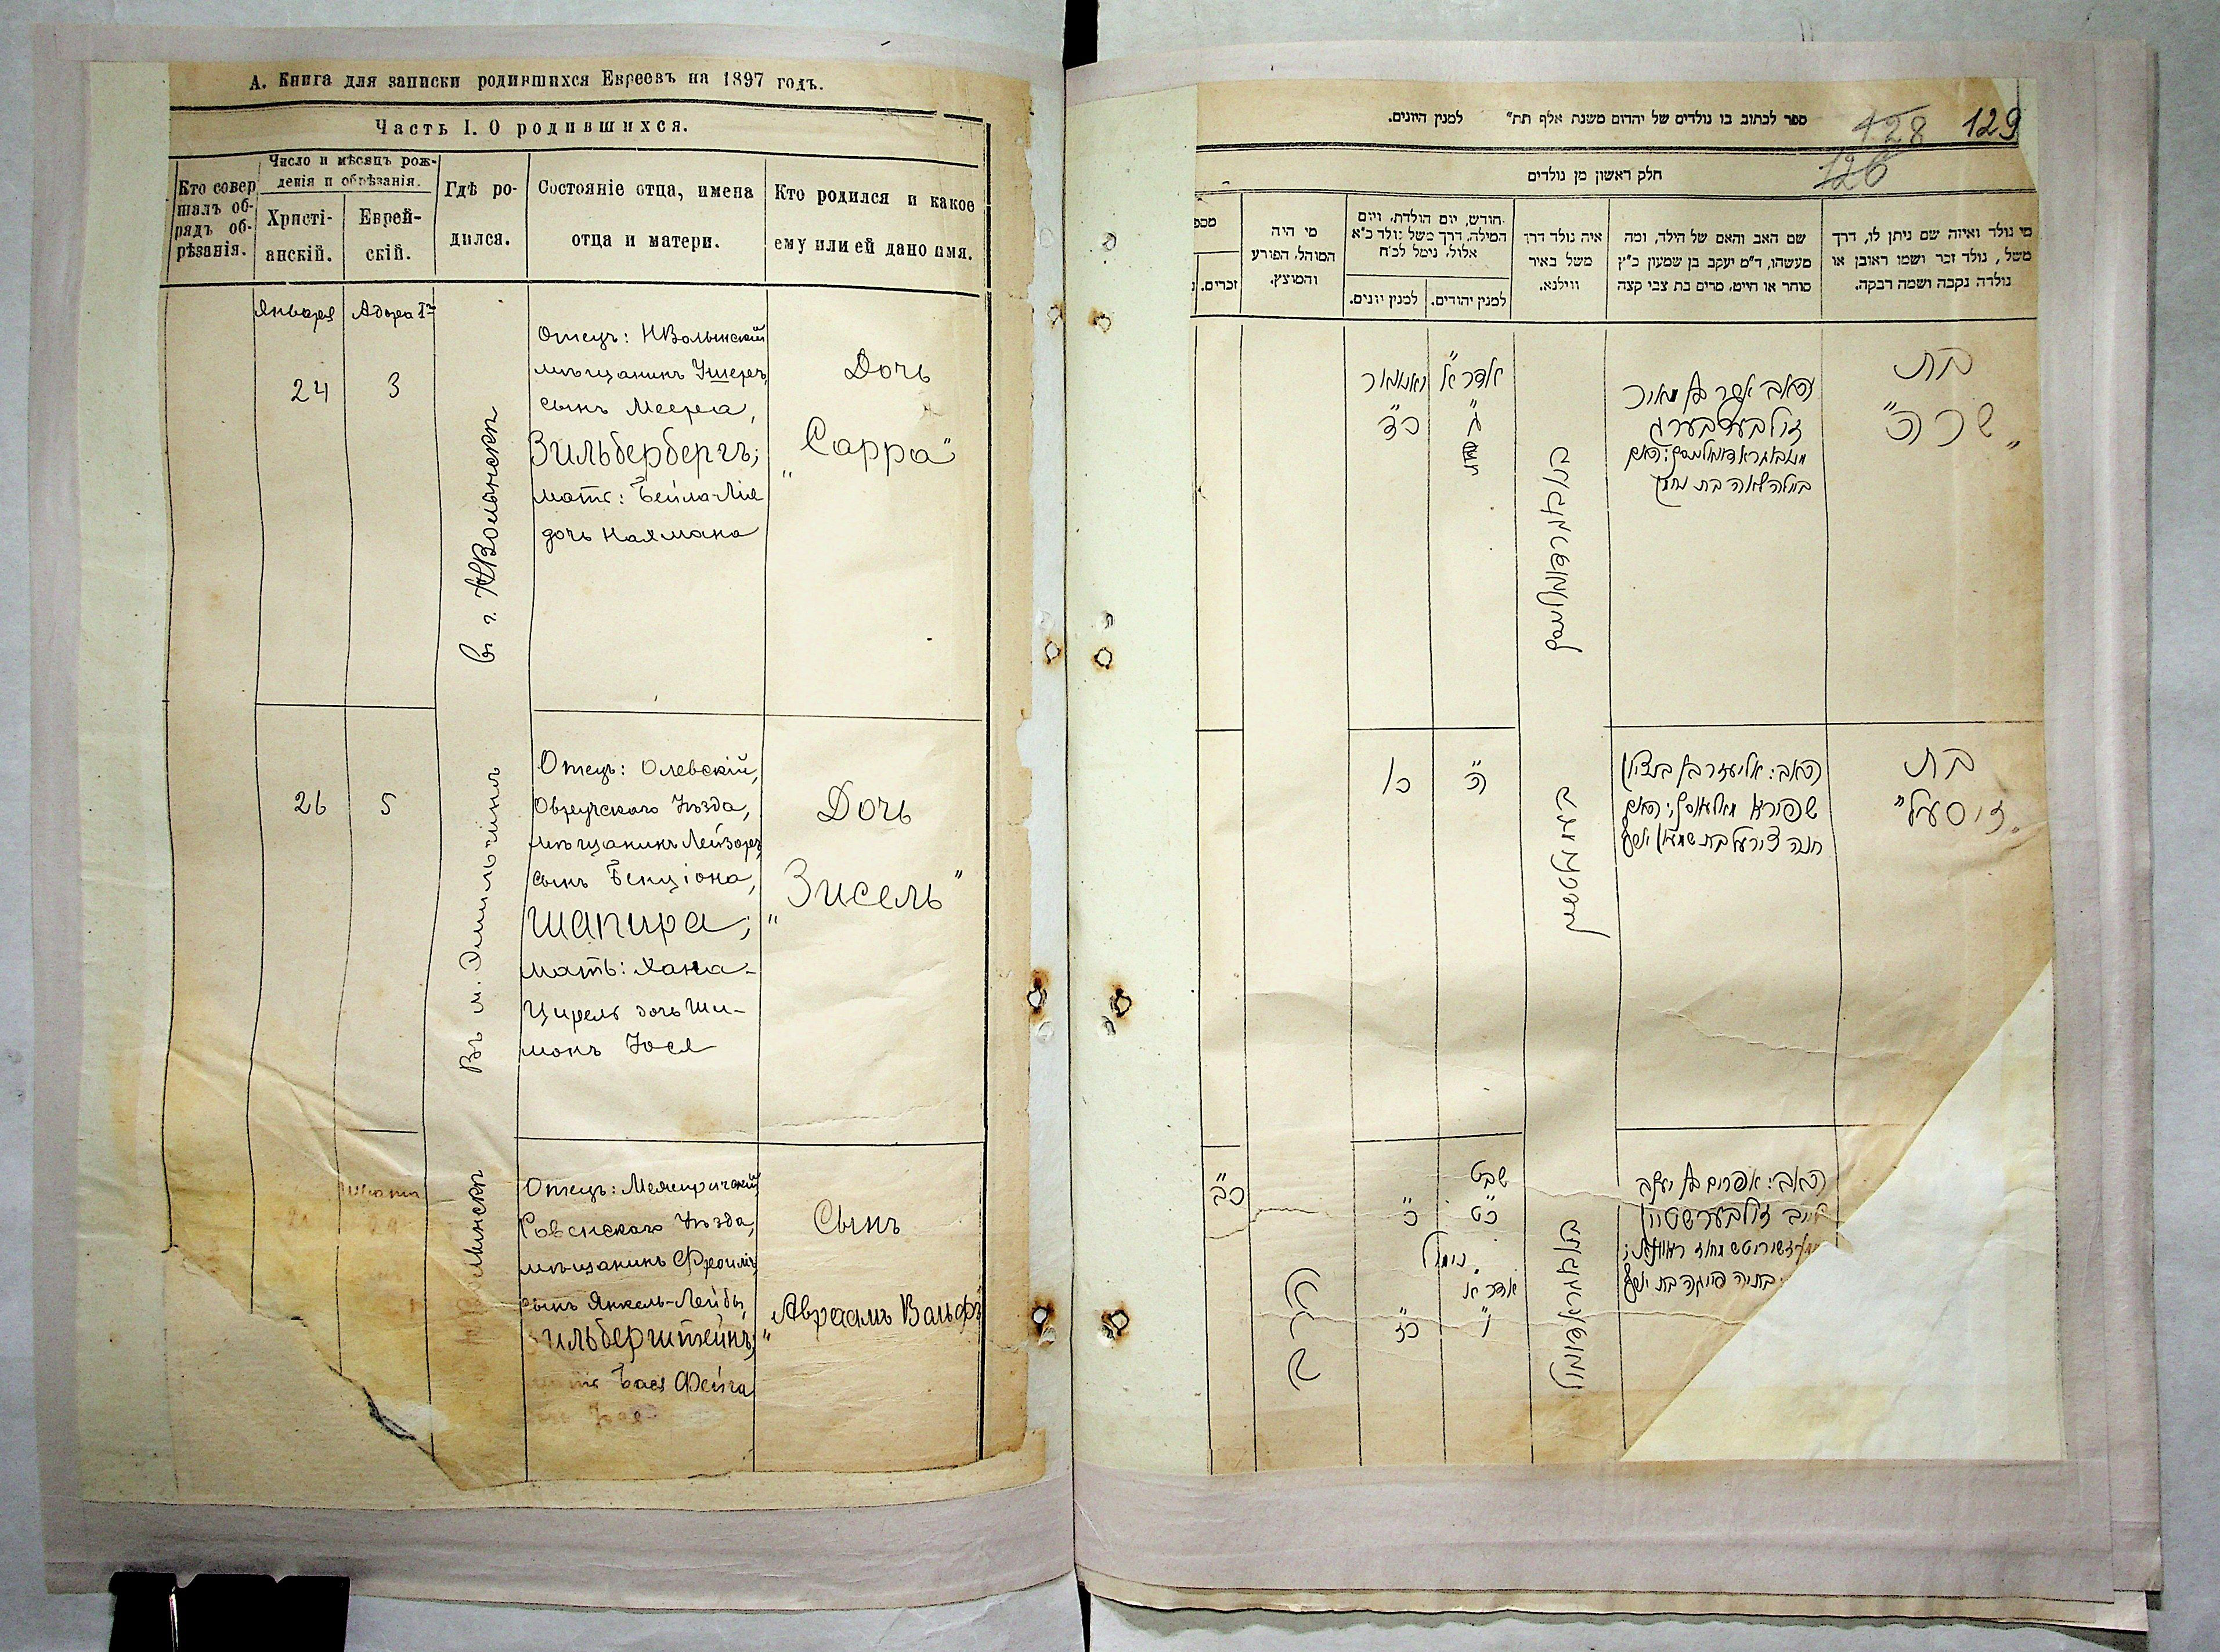 А. Книга для записки родившихся Евреевъ на 1897 годъ.
Часть I. О родившихся.
Кто совершалъ об-
рядъ об-
рѣзанія.
Число и мѣсяцъ рож-
денія и обрѣзанія.
Христі-
анскій.
Еврей-
скій.
Гдѣ ро-
дился.
Состояніе отца, имена
отца и матери.
Кто родился и какое
ему или ей дано имя.
Января
24
Адора I
3
в г. НВолынскъ
Отецъ: НВолынскій
мѣщанинъ Ушеръ,
сынъ Меера,
Зильбербергъ;
мать: Бейла-Лія
дочь Нахмана
Дочь
„Сарра"
26
5
Въ м. Эмильчинъ
Отецъ: Олевскій,
Овручскаго Уѣзда,
мѣщанинъ Лейзоръ,
сынъ Бенціона,
Шапира;
мать: Хана-
Цирель дочь Ши-
монъ Іося
Дочь
„Зисель"
Отецъ: Межиричскій
Ровенскаго Уѣзда,
мѣщанинъ Фроимъ,
сынъ Янкель-Лейбы,
Зильберштейнъ;
Бася Фейга
Сынъ
„Авраамъ Вольфъ
ספר לכתוב בו נולדים של יהדום משנת אלף תת״ למנין היונים.
128
129
126
חלק ראשון מן נולדים
מי נולד ואיזה שם ניתן לו, דרך
משל, נולד זכר ושמו ראובן או
נולדה נקבה ושמה רבקה.
שם האב והאם של הילד, ומה
מעשהו, ד״מ יעקב בן שמעון כ״ץ
סוחר או חייט, מרים בת צבי קצה
איה נולד דרך
משל באיר
ווילנא.
חודש, יום הולדת, ויום
המילה, דרך משל: ולד כ״א
אלול, נימל לכ״ח
למנין יהודים.
למנין יונים.
מי היה
המוהל, הפורע
והמוצץ.
מספ
זכרים.
בת
„שרה"
האב אשר בן מאיר
זילבערבערג
ביילה לאה בת נחמן
אדר א׳
ג׳
יאנוואר
כ״ד
בת
„זיסעל"
האב: אליעזר בן בנציון
שפירא
חנה צירעל בת שמעון יוסף
ה׳
כ״ו
האב: אפרים בן יעקב
ליב זילבערשטיין
שבט
כ״ט
כ׳
נימול
אדר א׳
ו׳
כ״ז
כ״ב